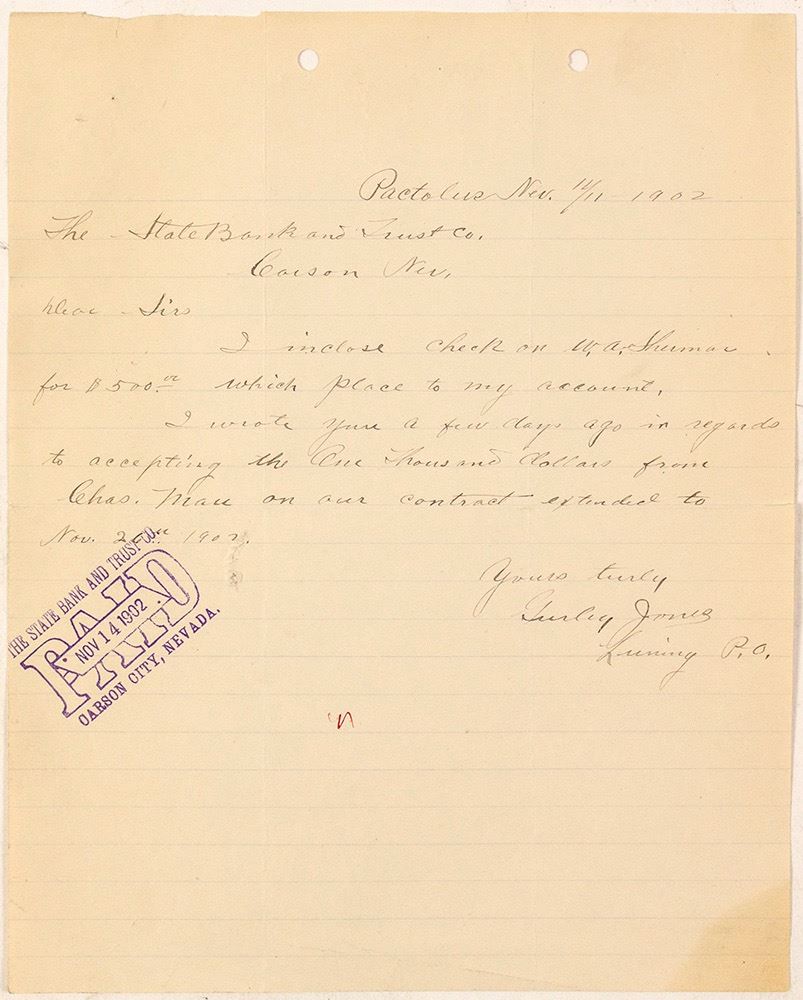 Pactolus Nev. 11/11 1902
The State Bank and Trust Co.
Carson Nev,
Dear Sirs
I inclose check on W. A. Shuman
for $500.00 which place to my account,
I wrote you a few days ago in regards
to accepting the One Thousand dollars from
Chas. Mau on our contract extended to
Nov. 1902.
Yours turly
Gurley Jones
Luning P.O.
THE STATE BANK AND TRUST CO.
PAID
NOV 14 1902
CARSON CITY, NEVADA.